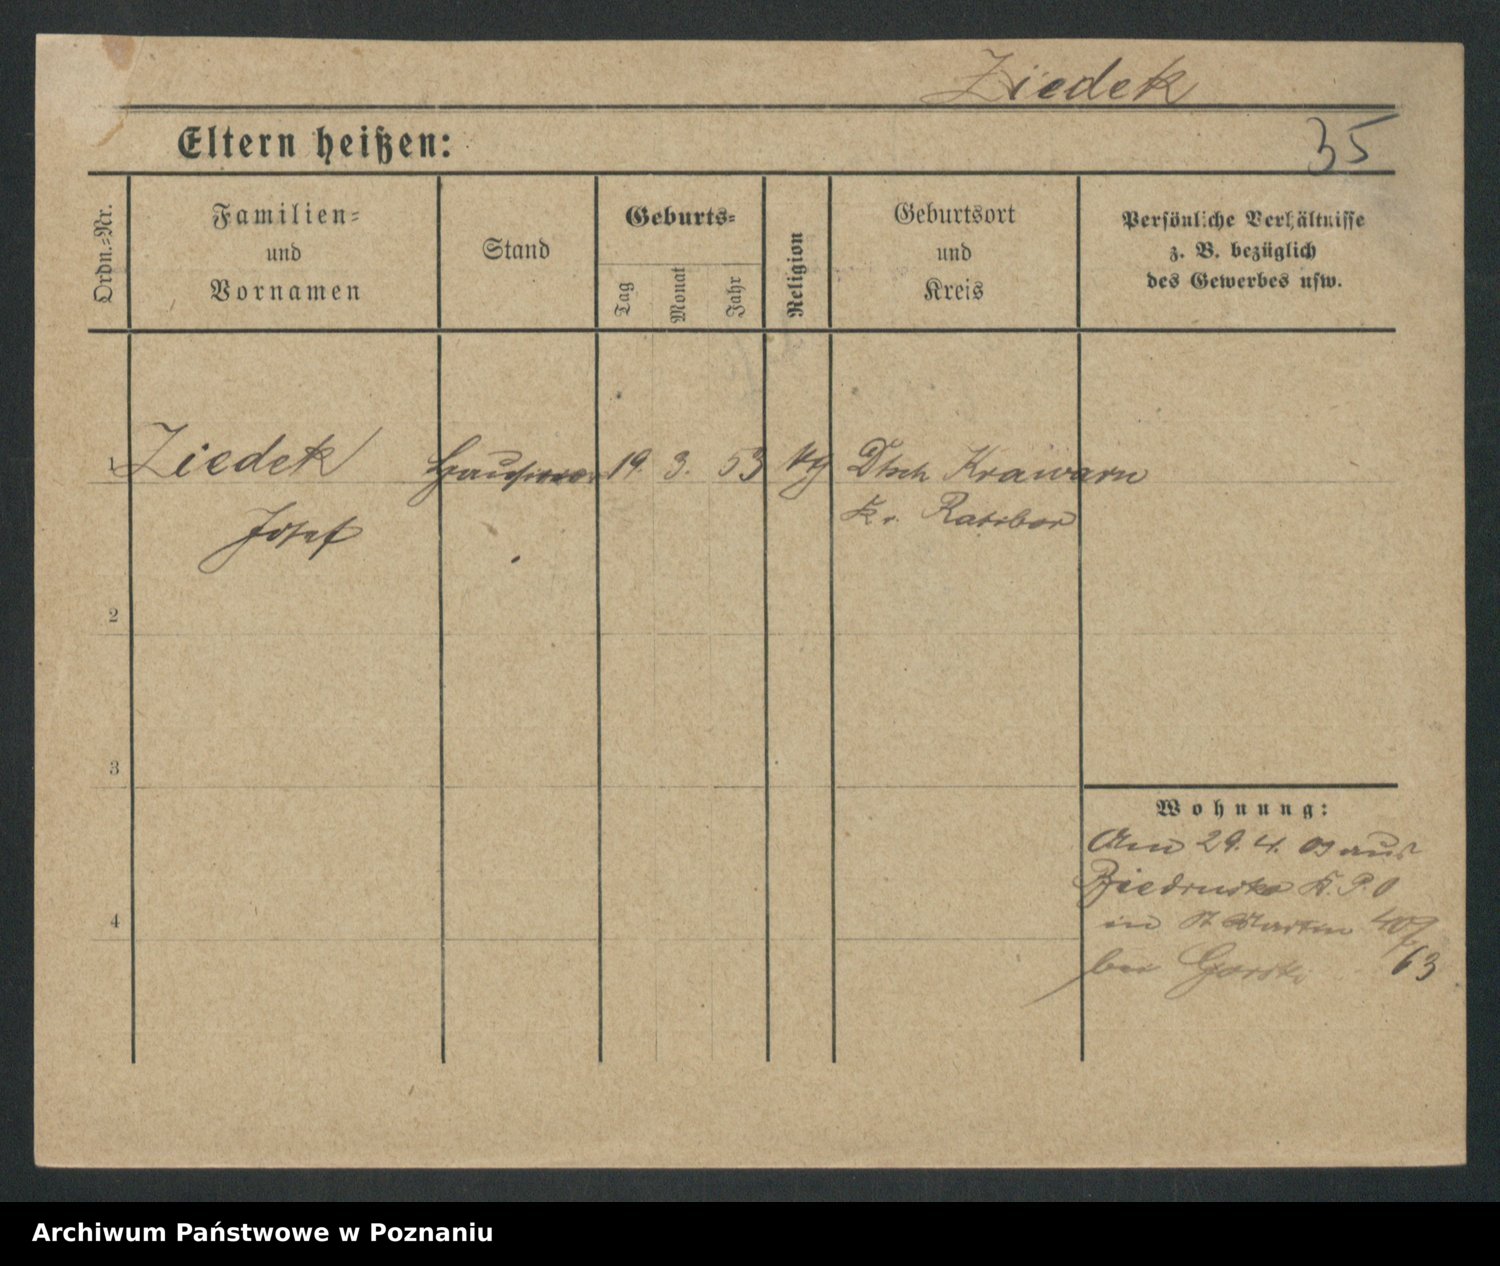 Ziedek
Eltern heißen:
35
Ordn.=Nr.
Familien=
und
Vornamen
Stand
Geburts=
Tag
Monat
Jahr
Religion
Geburtsort
und
Kreis
Persönliche Verhältnisse
z. B. bezüglich
des Gewerbes usw.
1
Ziedek
Hausierer
19. 3. 53
kg
Dtsch Krawarn
Josef
Kr. Ratibor
2
3
Wohnung:
Am 29. 4. 09 aus
Biedrusko K. P. O
4
in St Martin
bei Gorski
63
Archiwum Państwowe w Poznaniu